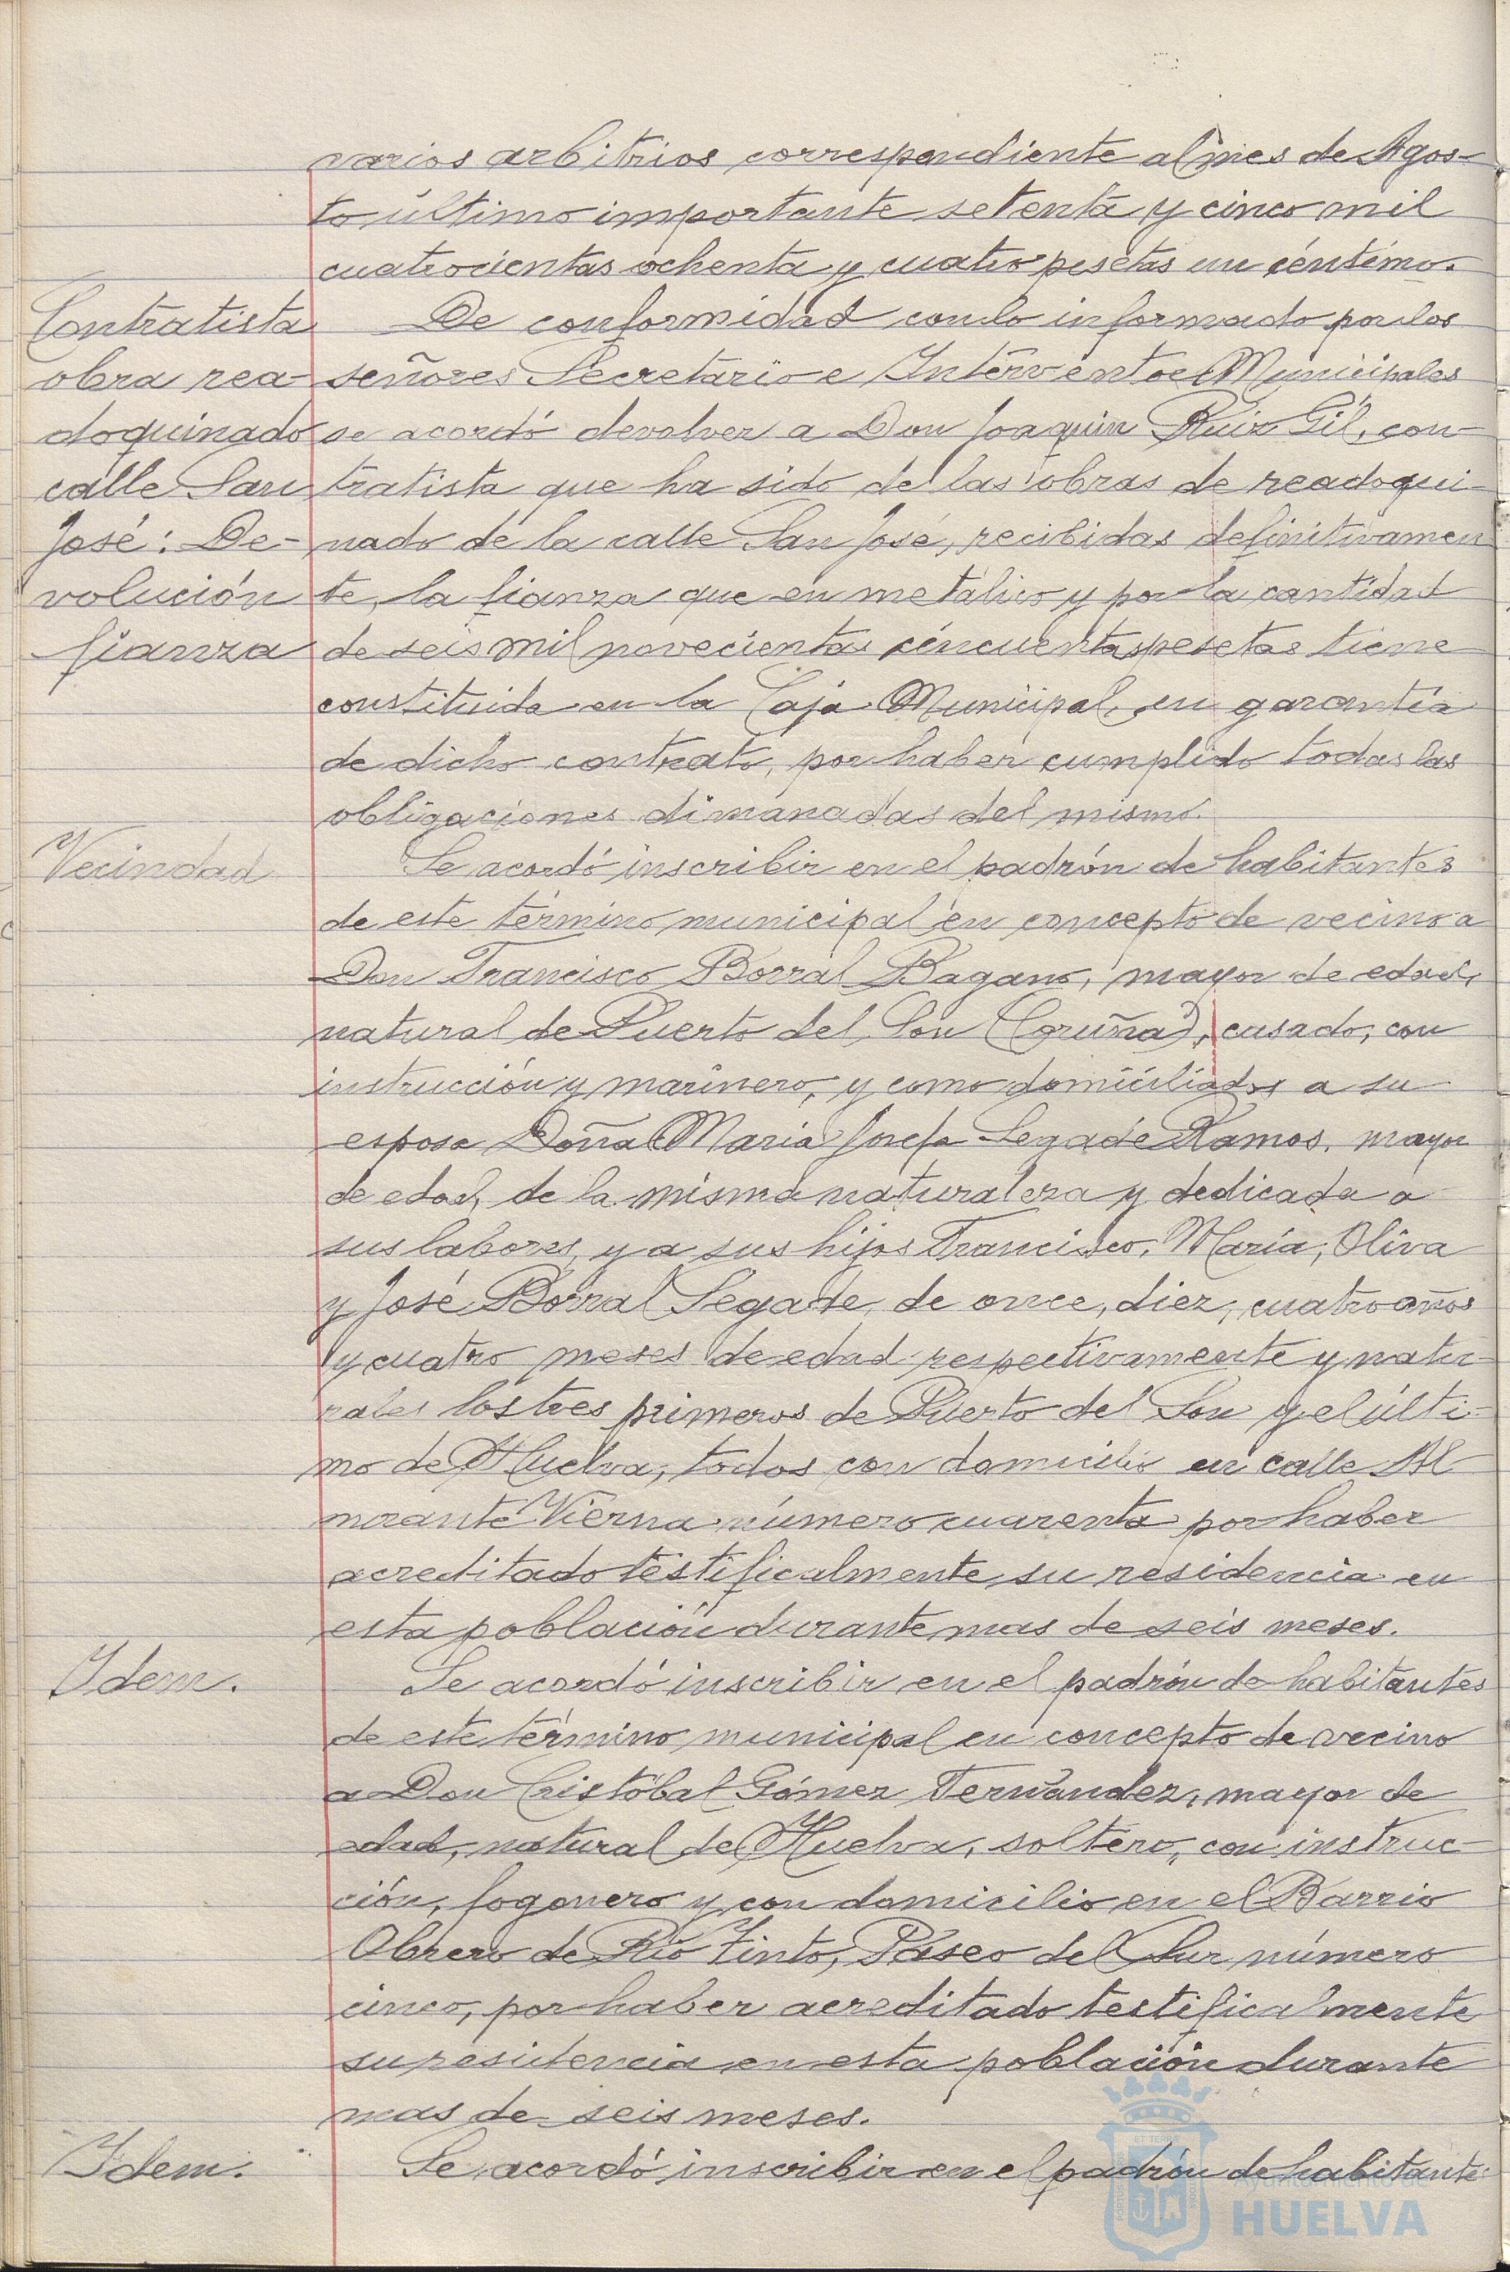 varios arbitrios correspondiente al mes de Agos-
to último importante setenta y cinco mil
cuatrocientas ochenta y cuatro pesetas un céntimo.
Contratista
obra rea-
doquinado
calle San
José: De-
volución
fianza
De conformidad con lo informado por los
señores Secretario e Interventor Municipales
se acordó devolver a Don Joaquin Ruiz Gil, con-
tratista que ha sido de las obras de readoqui-
nado de la calle San José, recibidas definitivamen
te, la fianza que en metálico y por la cantidad
de seis mil novecientas cincuenta pesetas tiene
constituida en la Caja Municipal, en garantía
de dicho contrato, por haber cumplido todas las
obligaciones dimanadas del mismo.
Vecindad
Se acordó inscribir en el padrón de habitantes
de este término municipal en concepto de vecino a
Don Francisco Borral Bagano, mayor de edad,
natural de Puerto del Son (Coruña), casado, con
instrucción y marinero, y como domiciliados a su
esposa Doña Maria Josefa Segade Ramos, mayor
de edad, de la misma naturaleza y dedicada a
sus labores, y a sus hijos Francisco, María, Oliva
y José Borral Segade, de once, diez, cuatro años
y cuatro meses de edad respectivamente y natu-
rales los tres primeros de Puerto del Son y el últi-
mo de Huelva, todos con domicilio en calle Al-
mirante Vierna número cuarenta por haber
acreditado testificalmente su residencia en
esta población durante mas de seis meses.
Idem.
Se acordó inscribir en el padrón de habitantes
de este término municipal en concepto de vecino
a Don Cristóbal Gómez Fernández, mayor de
edad, natural de Huelva, soltero, con instruc-
ción, fogonero y con domicilio en el Barrio
Obrero de Río Tinto, Paseo del Sur número
cinco, por haber acreditado testificalmente
su residencia en esta población durante
mas de seis meses.
Idem.
Se acordó inscribir en el padrón de habitantes
Ayuntamiento de
HUELVA